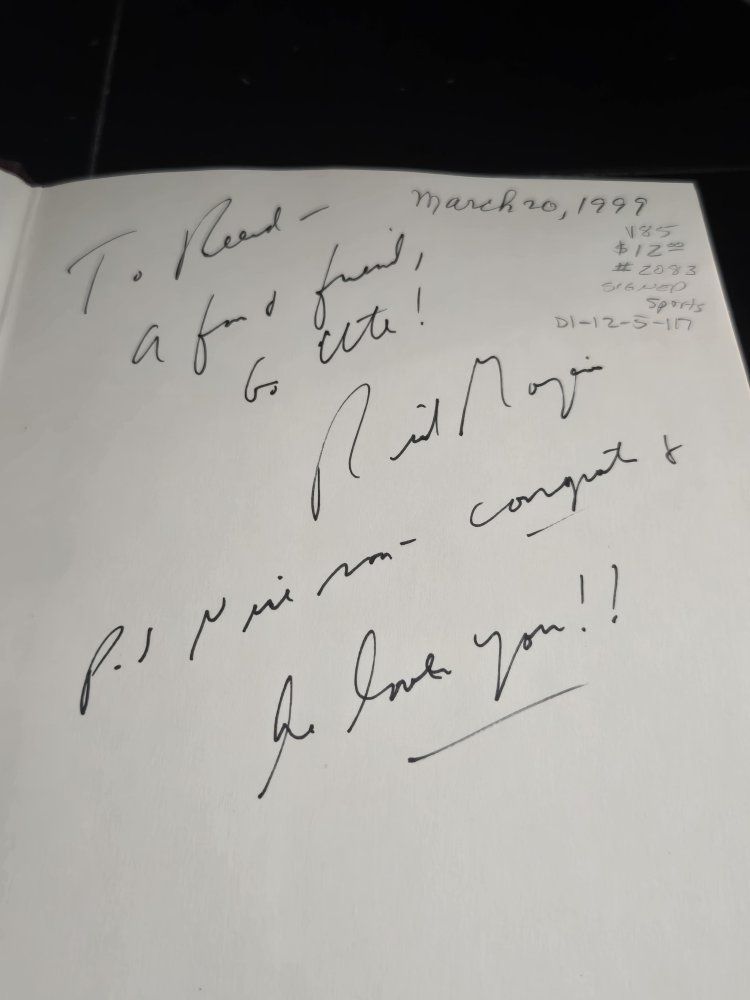 March 20, 1999
V85
$12.00
#2083
SIGNED
Sports
D1-12-5-117
To Reed -
a fond friend,
Go Ute!
Rick Majerus
P.S Nice son - congrats
he loves you!!